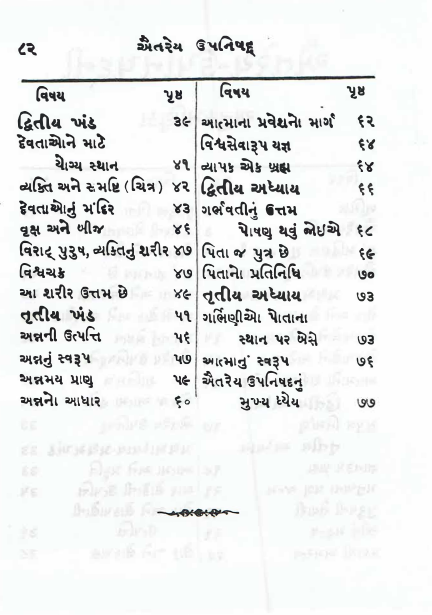 ૮૨ ઐતરેય ઉપનિષદ્
વિષય પૃષ્ઠ
દ્વિતીય ખંડ ૩૯
દેવતાઓને માટે
યોગ્ય સ્થાન ૪૧
વ્યક્તિ અને સમષ્ટિ (ચિત્ર) ૪૨
દેવતાઓનું મંદિર ૪૩
વૃક્ષ અને બીજ ૪૬
વિરાટ્ પુરુષ, વ્યક્તિનું શરીર ૪૭
વિશ્વચક્ર ૪૭
આ શરીર ઉત્તમ છે ૪૯
તૃતીય ખંડ ૫૧
અન્નની ઉત્પત્તિ ૫૬
અન્નનું સ્વરૂપ ૫૭
અન્નમય પ્રાણુ ૫૯
અન્નનો આધાર ૬૦
વિષય પૃષ્ઠ
આત્માના પ્રવેશનો માર્ગ ૬૨
વિશ્વસેવારૂપ યજ્ઞ ૬૪
વ્યાપક એક બ્રહ્મ ૬૪
દ્વિતીય અધ્યાય ૬૬
ગર્ભવતીનું ઉત્તમ
પોષણ થવું જોઈએ ૬૮
પિતા જ પુત્ર છે ૬૯
પિતાનો પ્રતિનિધિ ૭૦
તૃતીય અધ્યાય ૭૩
ગર્ભિણીઓ પોતાના
સ્થાન પર બેસે ૭૩
આત્માનું સ્વરૂપ ૭૬
ઐતરેય ઉપનિષદનું
મુખ્ય ધ્યેય ૭૭